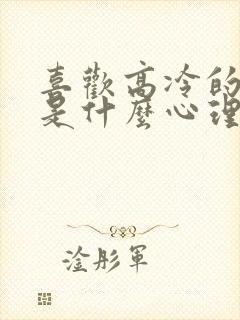 喜歡高冷的
是什麼心理
淦彤軍